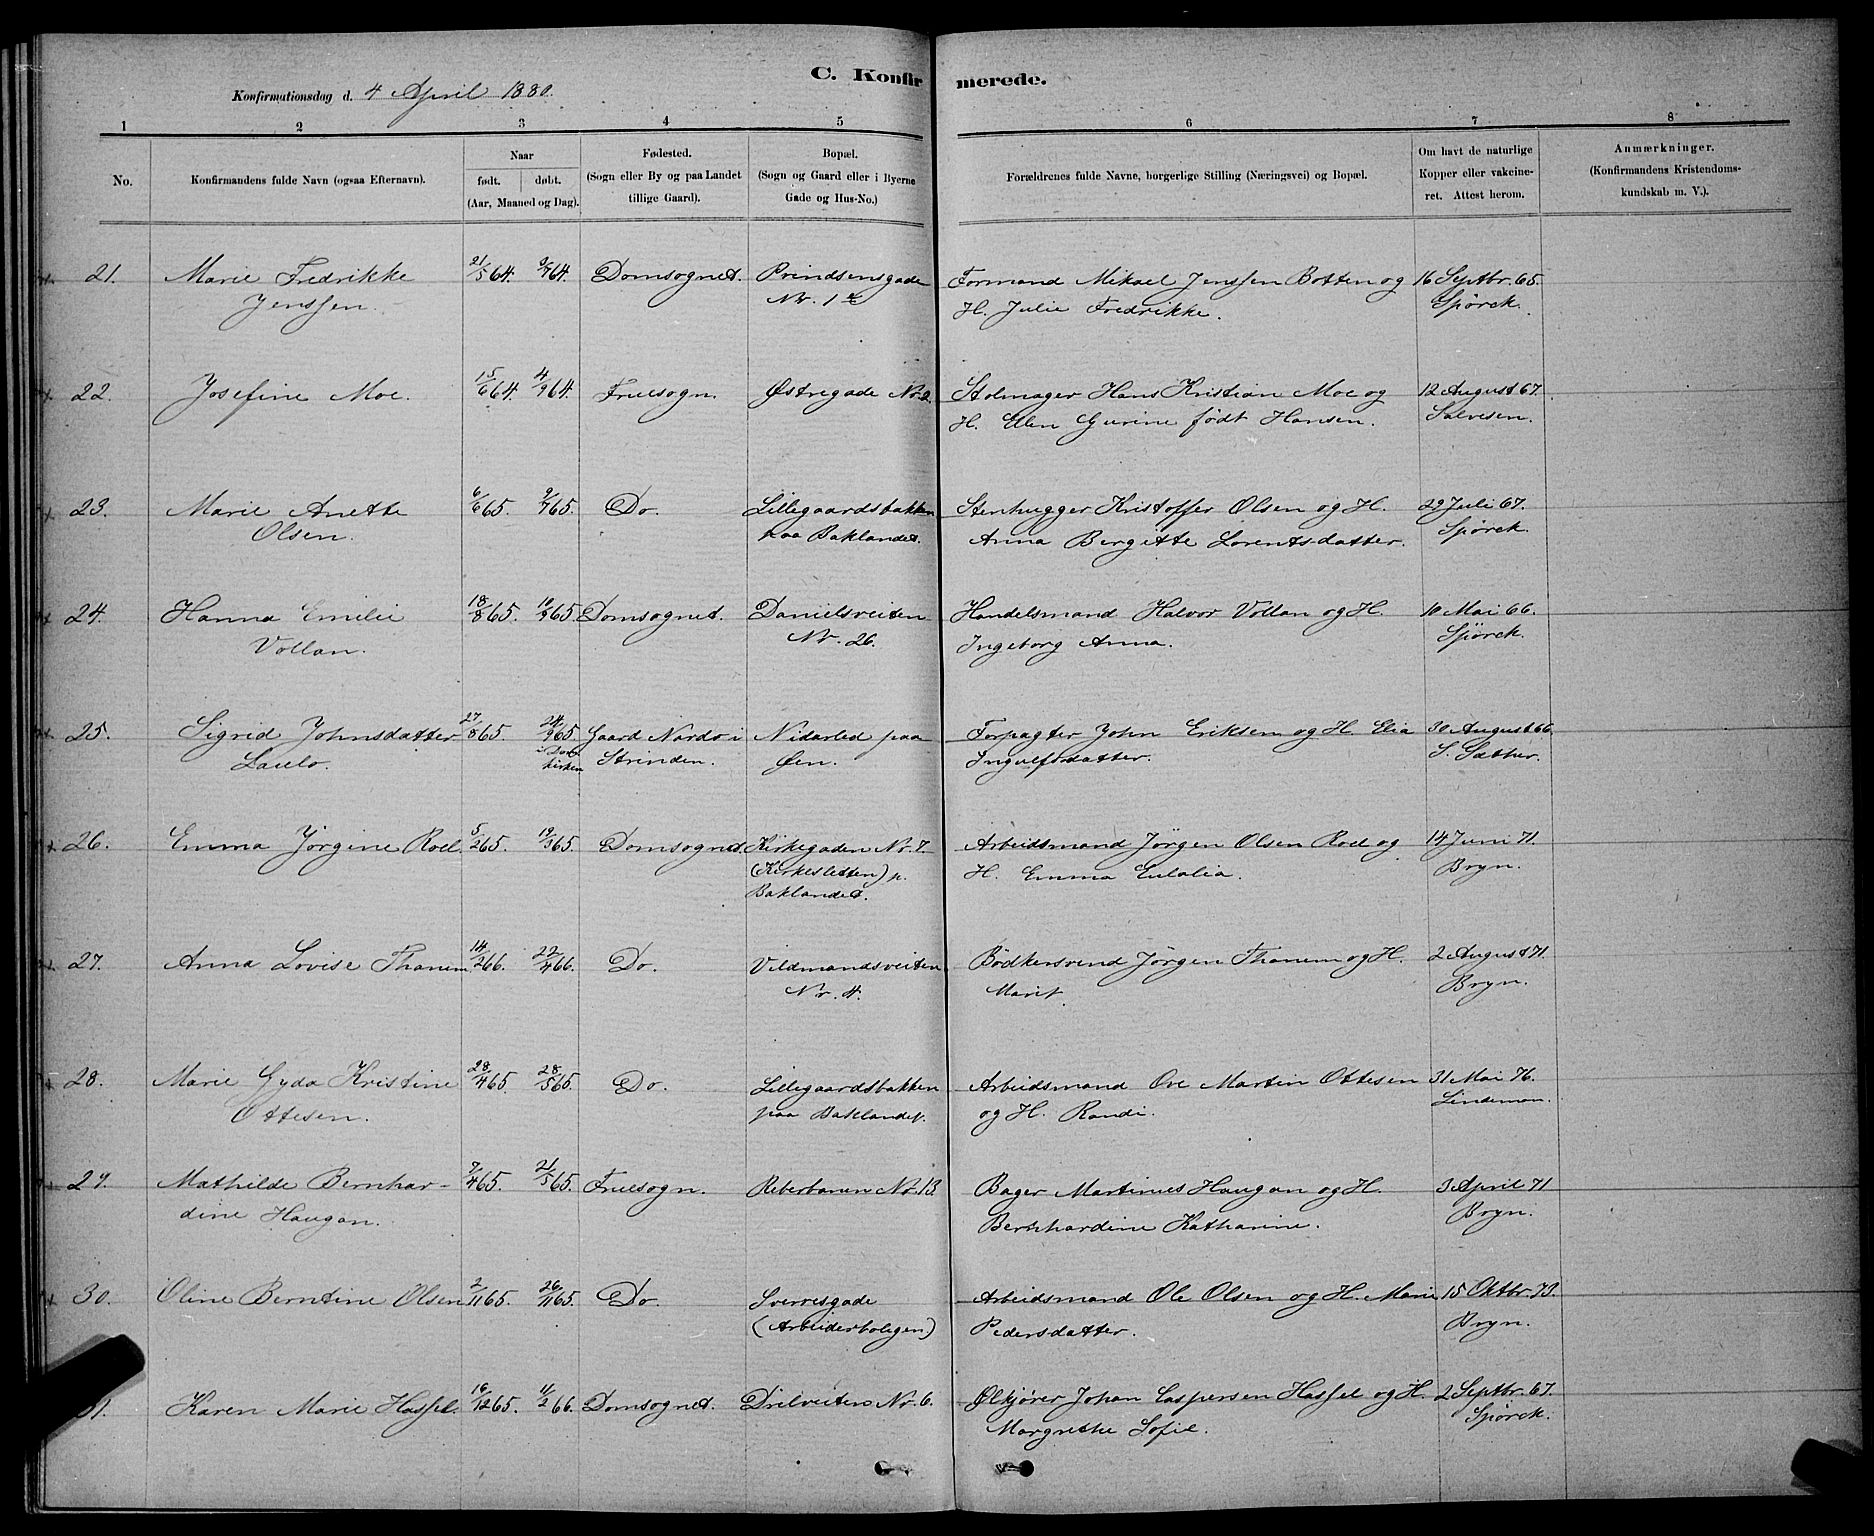 C. Konfir merede.
Konfirmationsdag d. 4 April 1880.
1 2 3 4 5 6 7 8
No.
Konfirmandens fulde Navn (ogsaa Efternavn).
Naar
født. døbt.
(Aar, Maaned og Dag).
Fødested.
(Sogn eller By og paa Landet
tillige Gaard).
Bopæl.
(Sogn og Gaard eller i Byerne
Gade og Hus-No.)
Forældrenes fulde Navne, borgerlige Stilling (Næringsvei) og Bopæl.
Om havt de naturlige
Kopper eller vakcine-
ret. Attest herom.
Anmærkninger.
(Konfirmandens Kristendoms-
kundskab m. V.).
21. Marie Fredrikke 21/5 64. 3/7 64. Domsognet. Prindsensgade Formand Mikael Jenssen Botten og 16 Septbr. 65.
Jenssen. Nr. 1 H. Julie Fredrikke. Spörck.
22. Josefine Moe. 15/6 64. 4/9 64. Fruesogn. Østregade Nr. 2. Stolmager Hans Kristian Moe og 12 August 67.
H. Elen Gurine født Hansen. Salvesen.
23. Marie Anette 6/6 65. 9/7 65. Do. Lillegaardsbakken Stenhugger Kristoffer Olsen og H. 29 Juli 67.
Olsen. paa Baklandet. Anna Birgitte Lorentsdatter. Spörck
24. Hanna Emilie 18/8 65. 10/9 65. Domsognet. Danielsveiten Handelsmand Halvor Vollan og H. 10 Mai 66.
Vollan. Nr. 26. Ingeborg Anna. Spörck.
25. Sigrid Johnsdatter 27/8 65. 24/9 65. Gaard Nardo i Nidarled paa Forpagter John Eriksen og H. Elia 30 August 66.
Laulo. i Domkirken Strinden. Øen. Ingulfsdatter. S. Sæther.
26. Emma Jörgine Roel. 5/2 65. 19/3 65. Domsognet. Kirkegaden Nr. 7. Arbeidsmand Jörgen Olsen Roel og 14 Juni 71.
(Kirkesletten) p. H. Emma Eulalia. Bryn.
Baklandet.
27. Anna Lovise Thanem. 14/2 66. 22/4 66. Do. Vildmandsveiten Bödkersvend Jörgen Thanem og H. 2 August 71.
Nr. 4. Marit. Bryn.
28. Marie Gyda Kristine 28/4 65. 28/5 65. Do. Lillegaardsbakken Arbeidsmand Ove Martin Ottesen 31 Mai 76.
Ottesen. paa Baklandet. og H. Randi. Lindeman.
29. Mathilde Bernhar- 7/4 65. 21/5 65. Fruesogn. Reberbanen Nr. 13. Bager Martinus Haugan og H. 3 April 71
dine Haugan. Bernhardine Katharine. Bryn.
30. Oline Berntine Olsen 2/11 65. 26/11 65. Do. Sverresgade Arbeidsmand Ole Olsen og H. Marie 15 Oktbr. 73.
(Arbeiderboligen) Pedersdatter. Bryn.
31. Karen Marie Hassel. 16/12 65. 11/2 66. Domsognet. Drilveiten Nr. 6. Ølkjörer Johan Caspersen Hassel og H. 2 Septbr. 67.
Margrethe Sofie. Spörck.